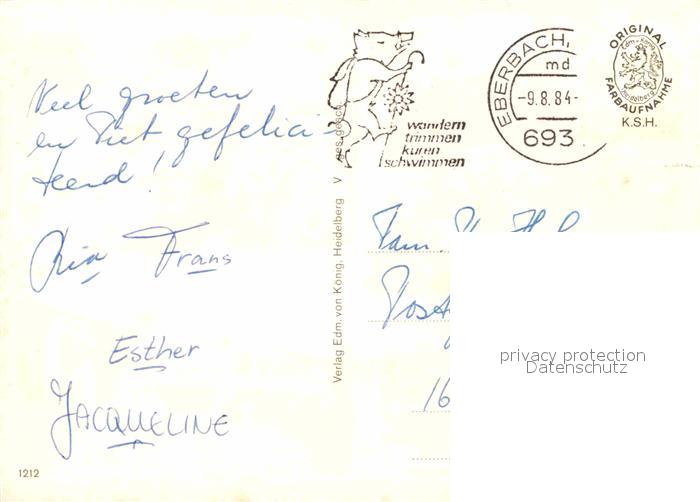 Veel groeten
en Piet gefelici-
teerd!
Ria Frans
Esther
JACQUELINE
1212
Verlag Edm. von König, Heidelberg V
ges. gesch.
wandern
trimmen
kuren
schwimmen
EBERBACH,
md
-9.8.84-
693
ORIGINAL
Edm. von König
Heidelberg
FARBAUFNAHME
K.S.H.
Fam.
16
privacy protection
Datenschutz